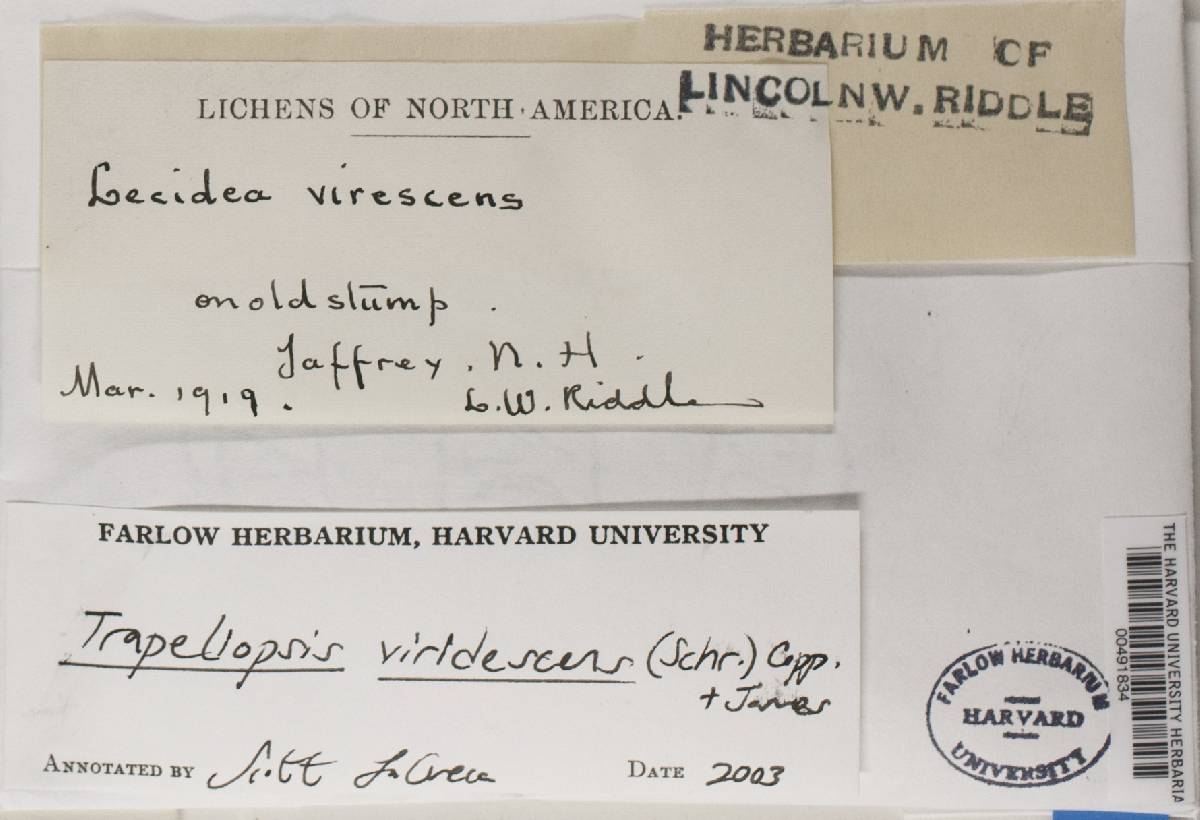 HERBARIUM OF
LINCOLN W. RIDDLE
LICHENS OF NORTH AMERICA.
Lecidea virescens
on old stump.
Jaffrey, N. H.
Mar. 1919.
L. W. Riddle
FARLOW HERBARIUM, HARVARD UNIVERSITY
Trapeliopsis viridescens (Schr.) Copp.
+ James
ANNOTATED BY Scott LaGreca DATE 2003
FARLOW HERBARIUM
HARVARD
UNIVERSITY
THE HARVARD UNIVERSITY HERBARIA
00491834